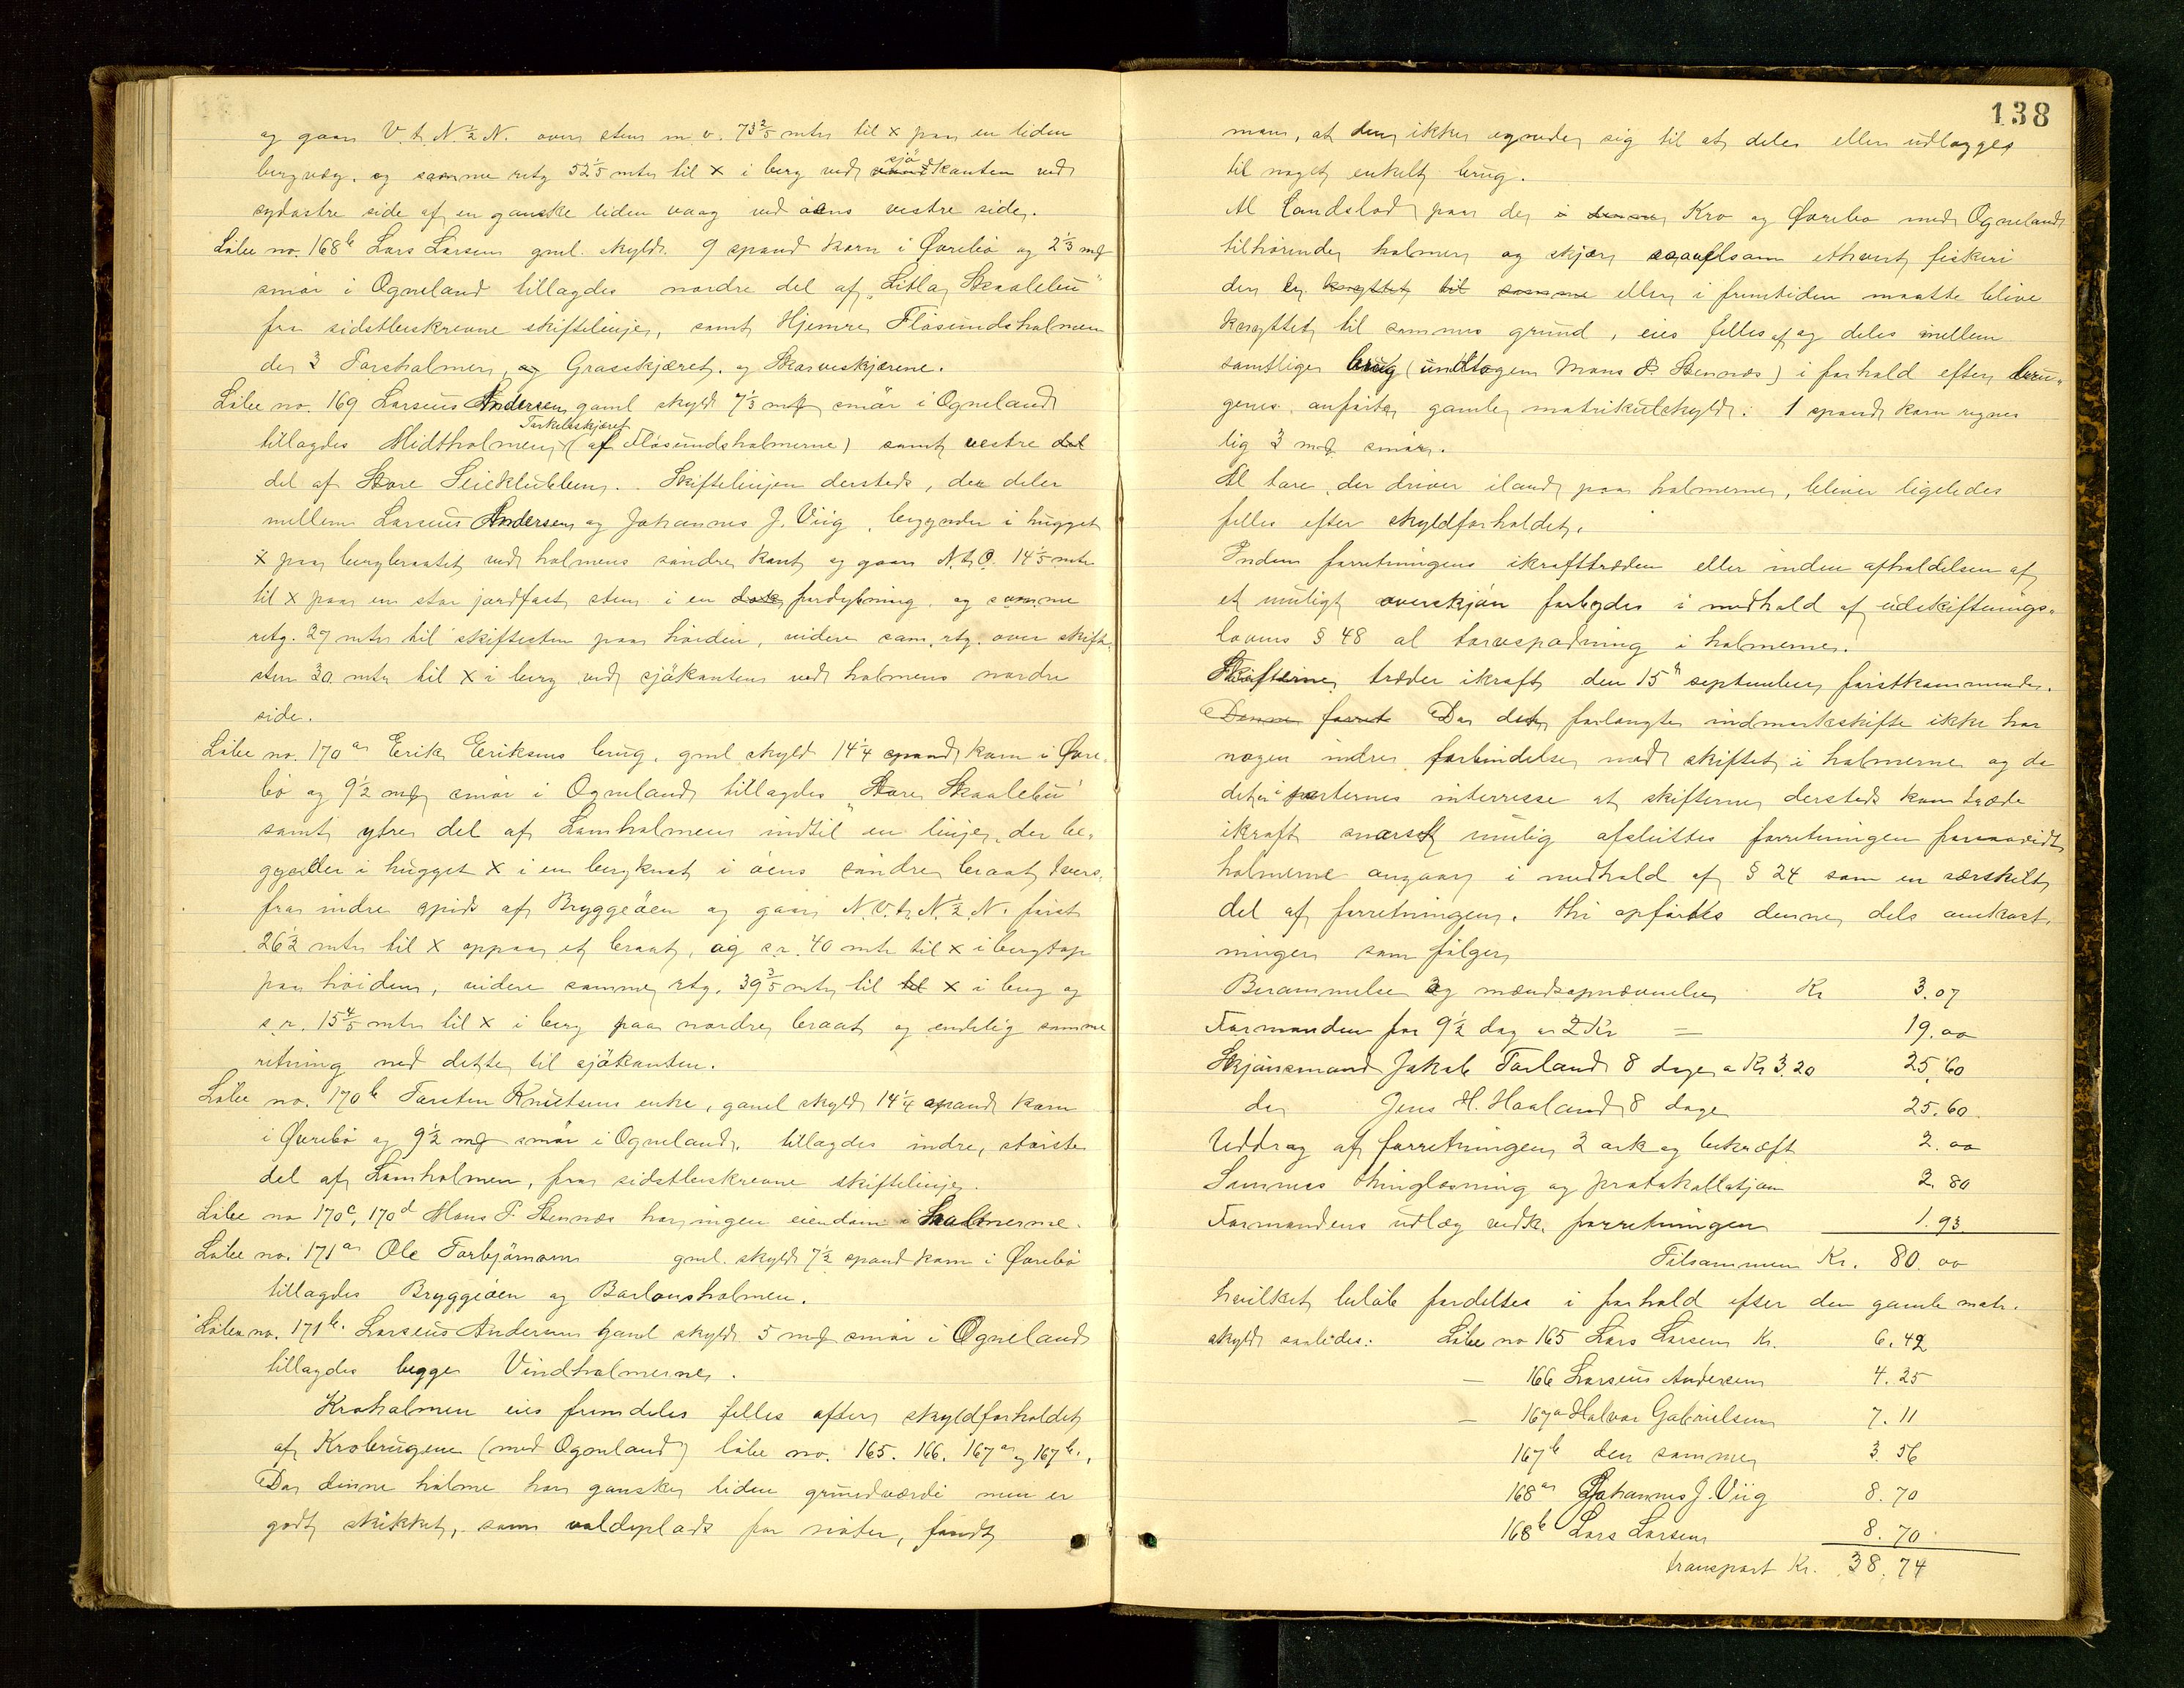 og gaar V. t. N. ½ N. over sten m. v. 73 2/5 mtr til x paa en liden
bergvæg. og samme retg 52 1/5 mtr til x i berg ved sjökanten ved
sydöstre side af en ganske liden vaag ved öens vestre side.
Löbe no. 168b Lars Larsen gml. skyld. 9 spand korn i Övrebö og 2 1/3 mrk
smör i Ogneland tillagdes nordre del af "Litla Skaalebu"
fra sidstbeskrevne skiftelinje, samt Hjemre Flösundsholmen
de 3 Torsholmer, og Grasskjæret. og Skarveskjærene.
Löbe no. 169 Larseus Andersen gaml skyld 7 1/3 mrk smör i Ogneland
Torkelsskjæret
tillagdes Midtholmen (af Flösundsholmerne) samt vestre del
del af Store Seieklubben. Skiftelinjen dersteds, der deler
mellem Larseus Andersen og Johannes J. Viig, begynder i hugget
x paa bergbraatet ved holmens söndre kant og gaar N. t. O. 14 1/5 mtr
til x paa en stor jordfast sten i en fordybning, og samme
retg. 29 mtr til skiftesten paa höiden, videre sam. rtg. over skift-
sten 30 mtr til x i berg ved sjökanten ved holmens nordre
side.
Löbe no. 170a Erik Eriksens brug, gml skyld 14 1/4 spand korn i Övre-
bö og 9 1/2 mrk smör i Ogneland tillagdes "Store Skaalebu"
samt ytre del af Lamholmen indtil en linje, der be-
gynder i hugget x i en bergknat i öens söndre braat tvers
fra indre spids af Bryggeöen og gaar N. V. t. N. ½ N. först
26 1/2 mtr til x oppaa et braat, og s. r. 40 mtr til x i bergtop
paa höiden, videre samme rtg. 39 3/5 mtr til til x i berg og
s. r. 15 4/5 mtr til x i berg paa nordre braat og endelig samme
retning ned dette til sjökanten.
Löbe no. 170b Torsten Knutsens enke, gaml skyld 14 1/4 spand korn
i Övrebö og 9 1/2 mrk smör i Ogneland. tillagdes indre, störste
del af Lamholmen, fra sidstbeskrevne skiftelinje.
Löbe no 170c, 170d Mons P. Stennæs har ingen eiendom i holmerne.
Löbe no. 171a Ole Torbjörnsen gml. skyld 7 1/2 spand korn i Övrebö
tillagdes Bryggeöen og Barlousholmen.
Löbe no. 171b. Larseus Andersen gaml skyld 5 mrk smör i Ogneland
tillagdes begge Vindholmerne.
Kroholmen eies fremdeles felles efter skyldforholdet
af Krobrugene (med Ogneland) löbe no. 165. 166. 167a og 167b.
Da denne holme har ganske liden grundværdi men er
godt skikket, som voldsplads for nöter, fandt
138
man, at den ikke egnede sig til at deles eller udlægges
til noget enkelt brug.
Al landslod paa de i denne Kro og Övrebö med Ogneland
tilhörende holmer og skjær saavelsom ethvert fiskeri
der er knyttet til samme eller i fremtiden maatte blive
knyttet til sammes grund, eies felles af og deles mellem
samtlige brug (undtagen Mons P. Stennæs) i forhold efter bru-
genes anförte gamle matrikulskyld: 1 spand korn regnes
lig 3 mrk smör.
Al tare, der driver iland paa holmerne, bliver ligeledes
felles efter skyldforholdet.
Inden forretningens ikrafttræden eller inden afholdelsen af
et muligt overskjön forbydes i medhold af udskiftnings-
lovens § 48 al torvspadning i holmerne.
Skifterne træder ikraft den 15de september förstkommende.
Denne forret Da det forlangte indmarksskifte ikke har
nogen indre forbindelse med skiftet i holmerne og da
det er i parternes interresse at skifterne dersteds kan træde
ikraft snarest mulig afsluttes forretningen forsaavidt
holmerne angaar i medhold af § 24 som en særskilt
del af forretningen. Thi opförtes denne dels omkost-
ninger som fölger
Berammelse og mændsopnævnelse Kr 3.07
Formanden for 9 1/2 dag a 2 Kr = 19.00
Skjönsmand Jakob Torland 8 dage a Kr 3.20 25.60
do Jens H. Haaland 8 dage 25.60
Uddrag af forretningen 2 ark og bekræft 2.00
Sammes thinglæsning og protokollatjon 2.80
Formandens udlæg vedk. forretningen 1.93
Tilsammen Kr. 80.00
hvilket belöb fordeltes i forhold efter den gamle matr.
skyld saaledes: Löbe no 165 Lars Larsen Kr. 6.42
— 166 Larseus Andersen 4.25
— 167a Halvor Gabrielsen 7.11
167b den samme 3.56
168a Johannes J. Viig 8.70
168b Lars Larsen 8.70
transport Kr. 38.74